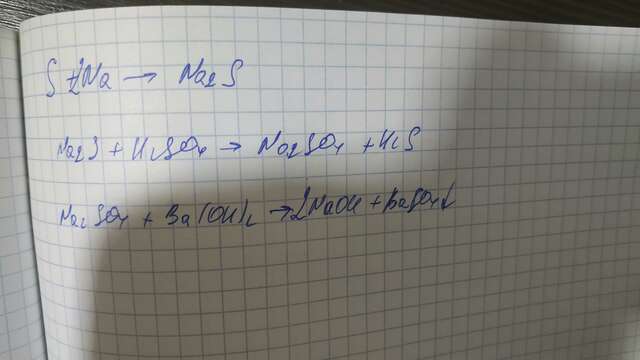 S + 2Na → Na2S
Na2S + H2SO4 → Na2SO4 + H2S
Na2SO4 + Ba(OH)2 → 2NaOH + BaSO4↓